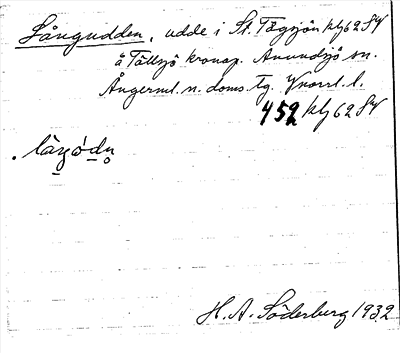 Långudden, udde i St. Tågsjön klj 62 SV
å Tällsjö kronop. Anundsjö sn.
Ångerml. n. doms. tg. Vnorrl. l.
452 klj 62 SV
H. A. Söderberg 1932